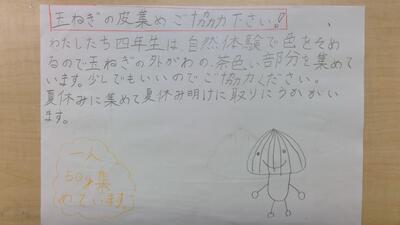 玉ねぎの皮集めご協力下さい!
わたしたち四年生は、自然体験で色をそめ
るので玉ねぎの外がわの、茶色い部分を集めて
います。少しでもいいのでご協力ください。
夏休みに集めて夏休み明けに取りにうかがい
ます。
一人
50g集
めています。